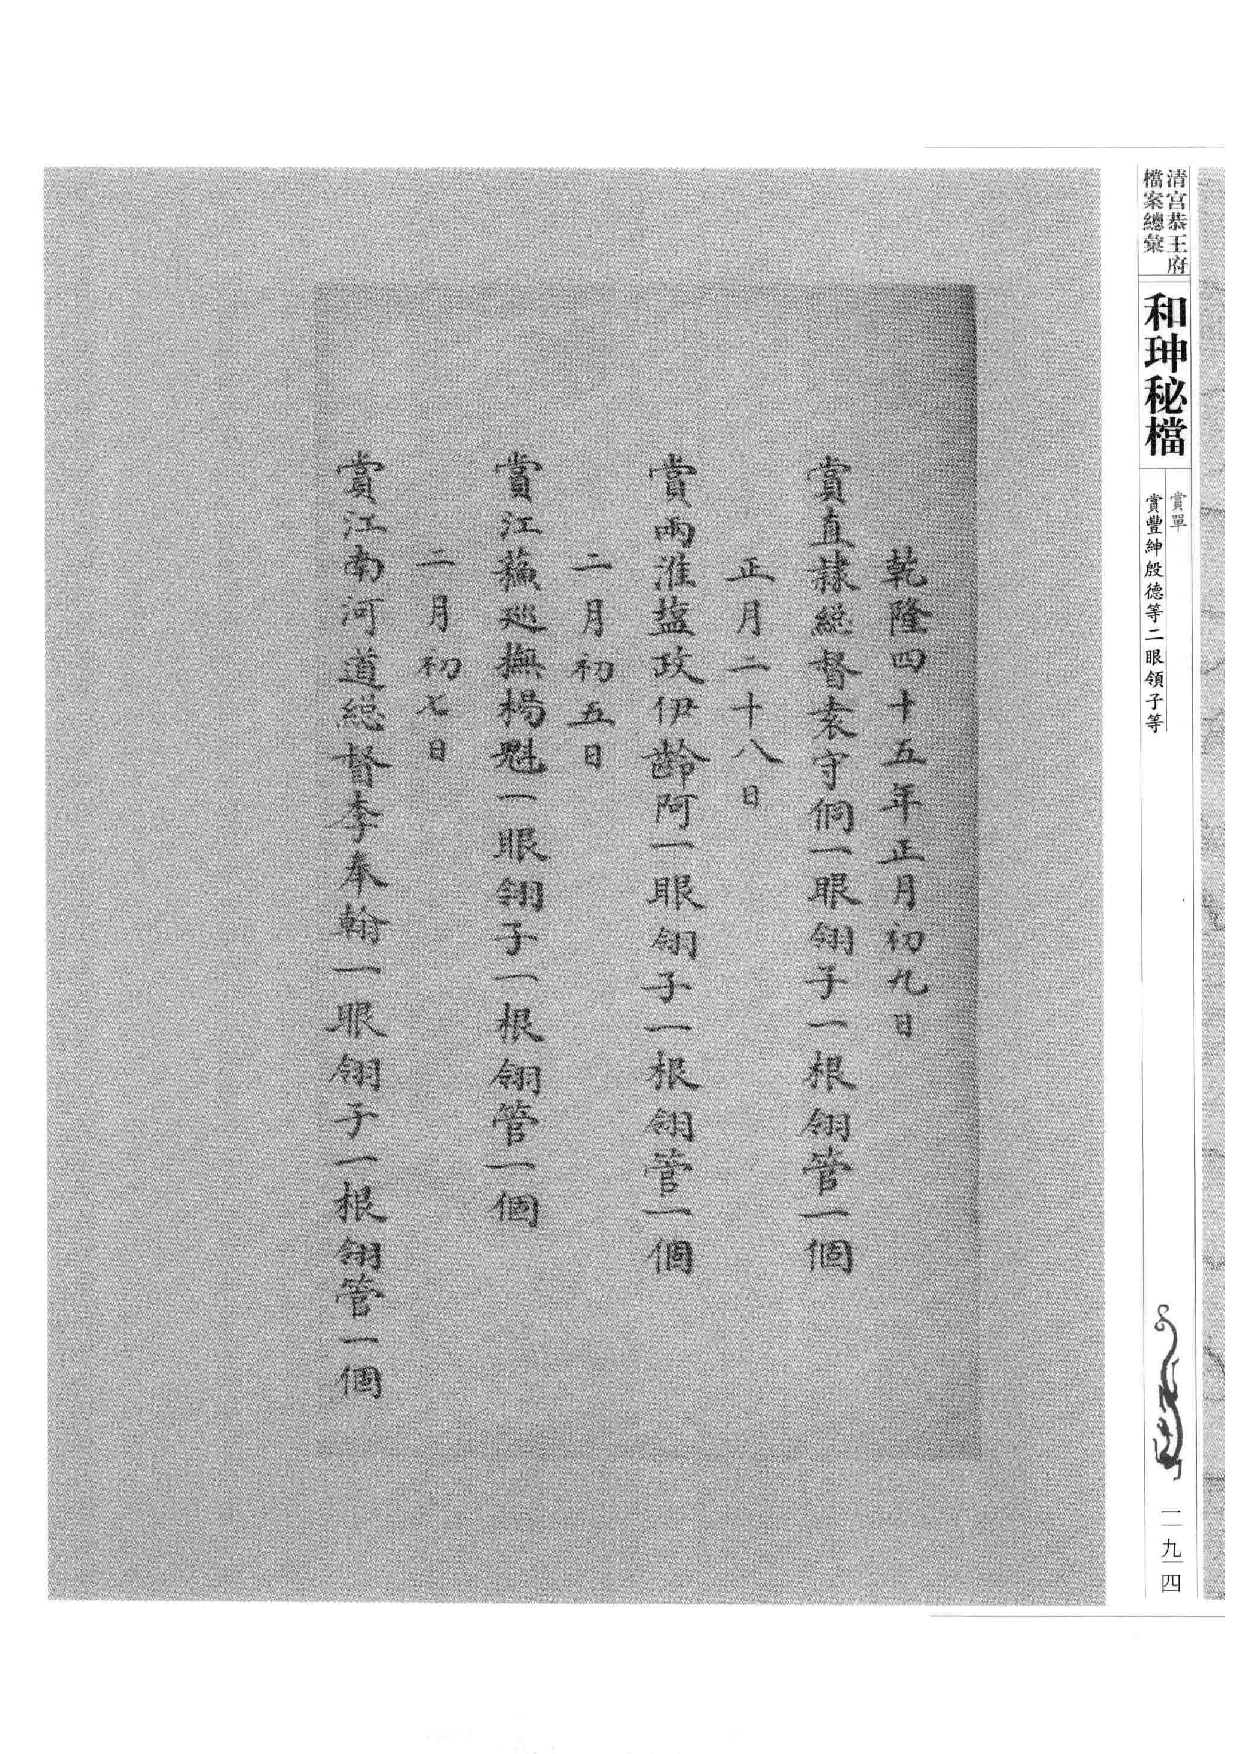 清宮恭王府
檔案總彙
和珅秘檔
賞單
賞豐紳殷德等二眼領子等
一九四
乾隆四十五年正月初九日
賞直隷總督袁守侗一眼翎子一根翎管一個
正月二十八日
賞兩淮盐政伊齡阿一眼翎子一根翎管一個
二月初五日
賞江蘓廵撫楊魁一眼翎子一根翎管一個
二月初七日
賞江南河道總督李奉翰一眼翎子一根翎管一個